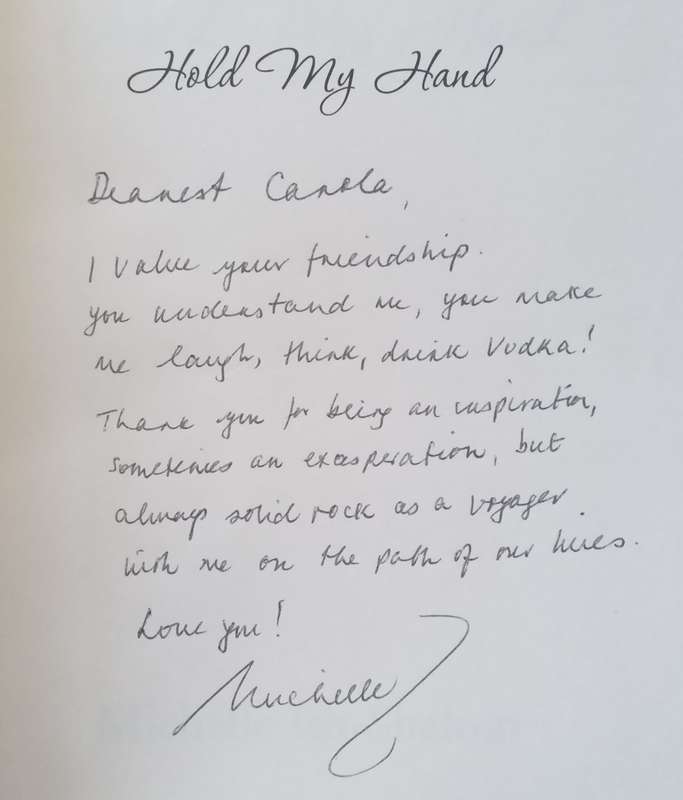 Hold My Hand
Dearest Carola,
I value your friendship.
You understand me, you make
me laugh, think, drink vodka!
Thank you for being an inspiration,
sometimes an exasperation, but
always solid rock as a voyager
with me on the path of our lives.
Love you!
Michelle